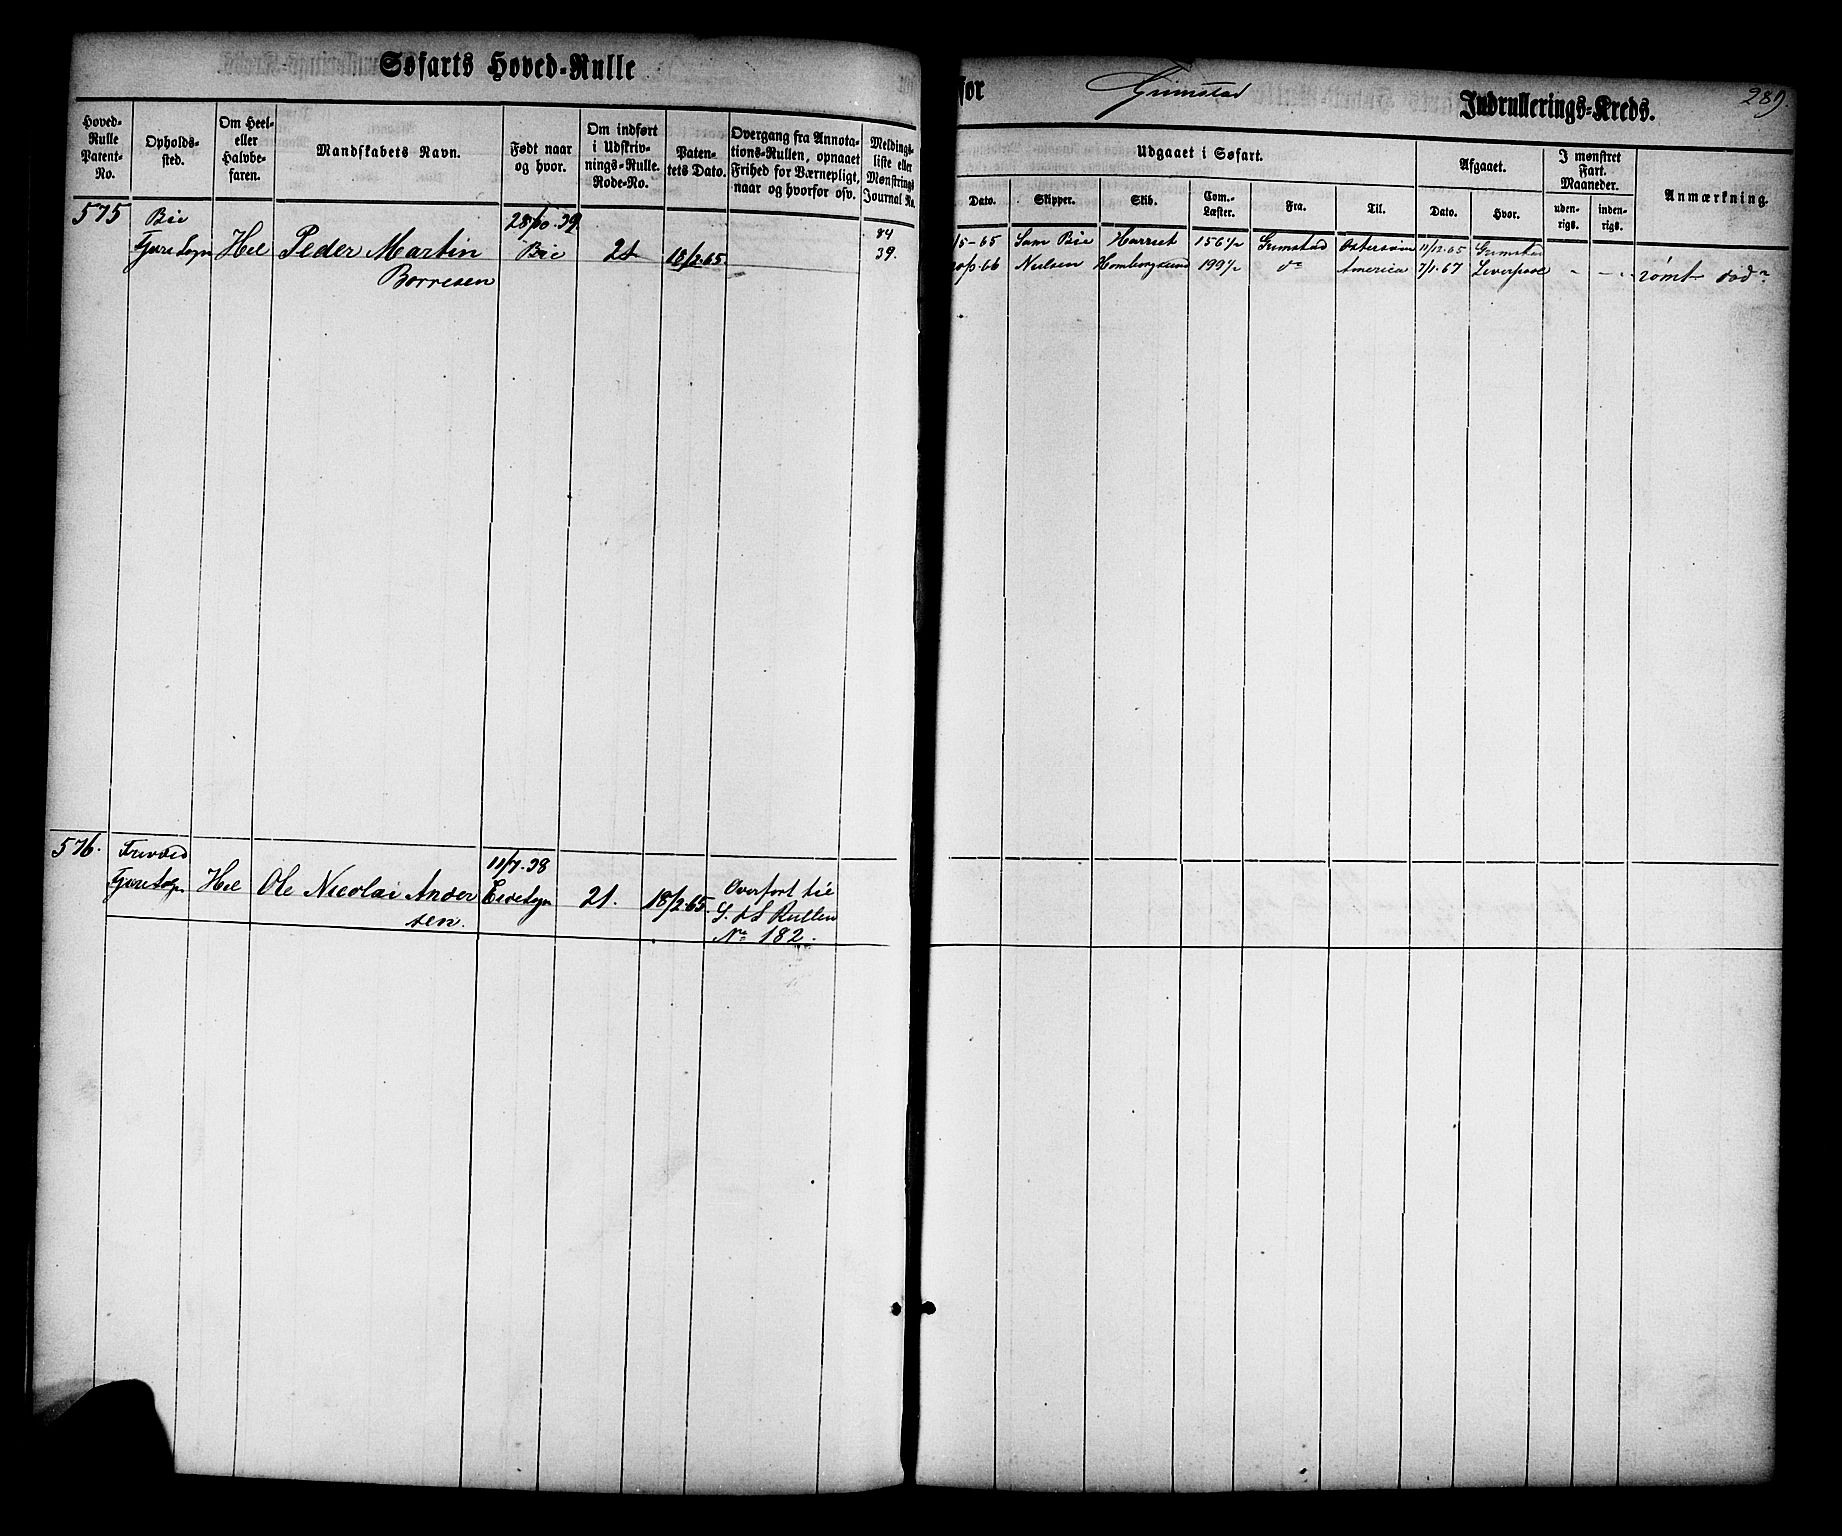 Søfarts Hoved-Rulle
for Grimstad Indrullerings-Kreds.
289.
Hoved-Rulle Patent-No.
Opholds-sted.
Om Heel- eller Halvbe-faren.
Mandskabets Navn.
Født naar og hvor.
Om indført i Udskriv-nings-Rulle. Rode-No.
Paten-tets Dato.
Overgang fra Annota-tions-Rullen, opnaaet Frihed for Værnepligt, naar og hvorfor osv.
Meldings-liste eller Mønstrings Journal No.
Udgaaet i Søfart.
Afgaaet.
I mønstret Fart. Maaneder.
Anmærkning.
Dato.
Skipper.
Skib.
Com.-Læster.
Fra.
Til.
Dato.
Hvor.
uden-rigs.
inden-rigs.
575 Bie 28/10.39. 84
Fjære Sogn Hel Peder Martin Bie 21 18/2.65. 39.
Børresen
/5-65 Sam Bie Harriet 156½ Grimstad Østersøen 11/12.65 Grimstad
/9.66 Nielsen Homborgsund 199½ do America 7/1.67 Liverpool - - rømt
576. Frivold 11/7.38
Fjære Sogn Hel Ole Nicolai Ander Eide Sogn 21. 18/2.65. Overført til
sen. S. & S Rullen
No 182.